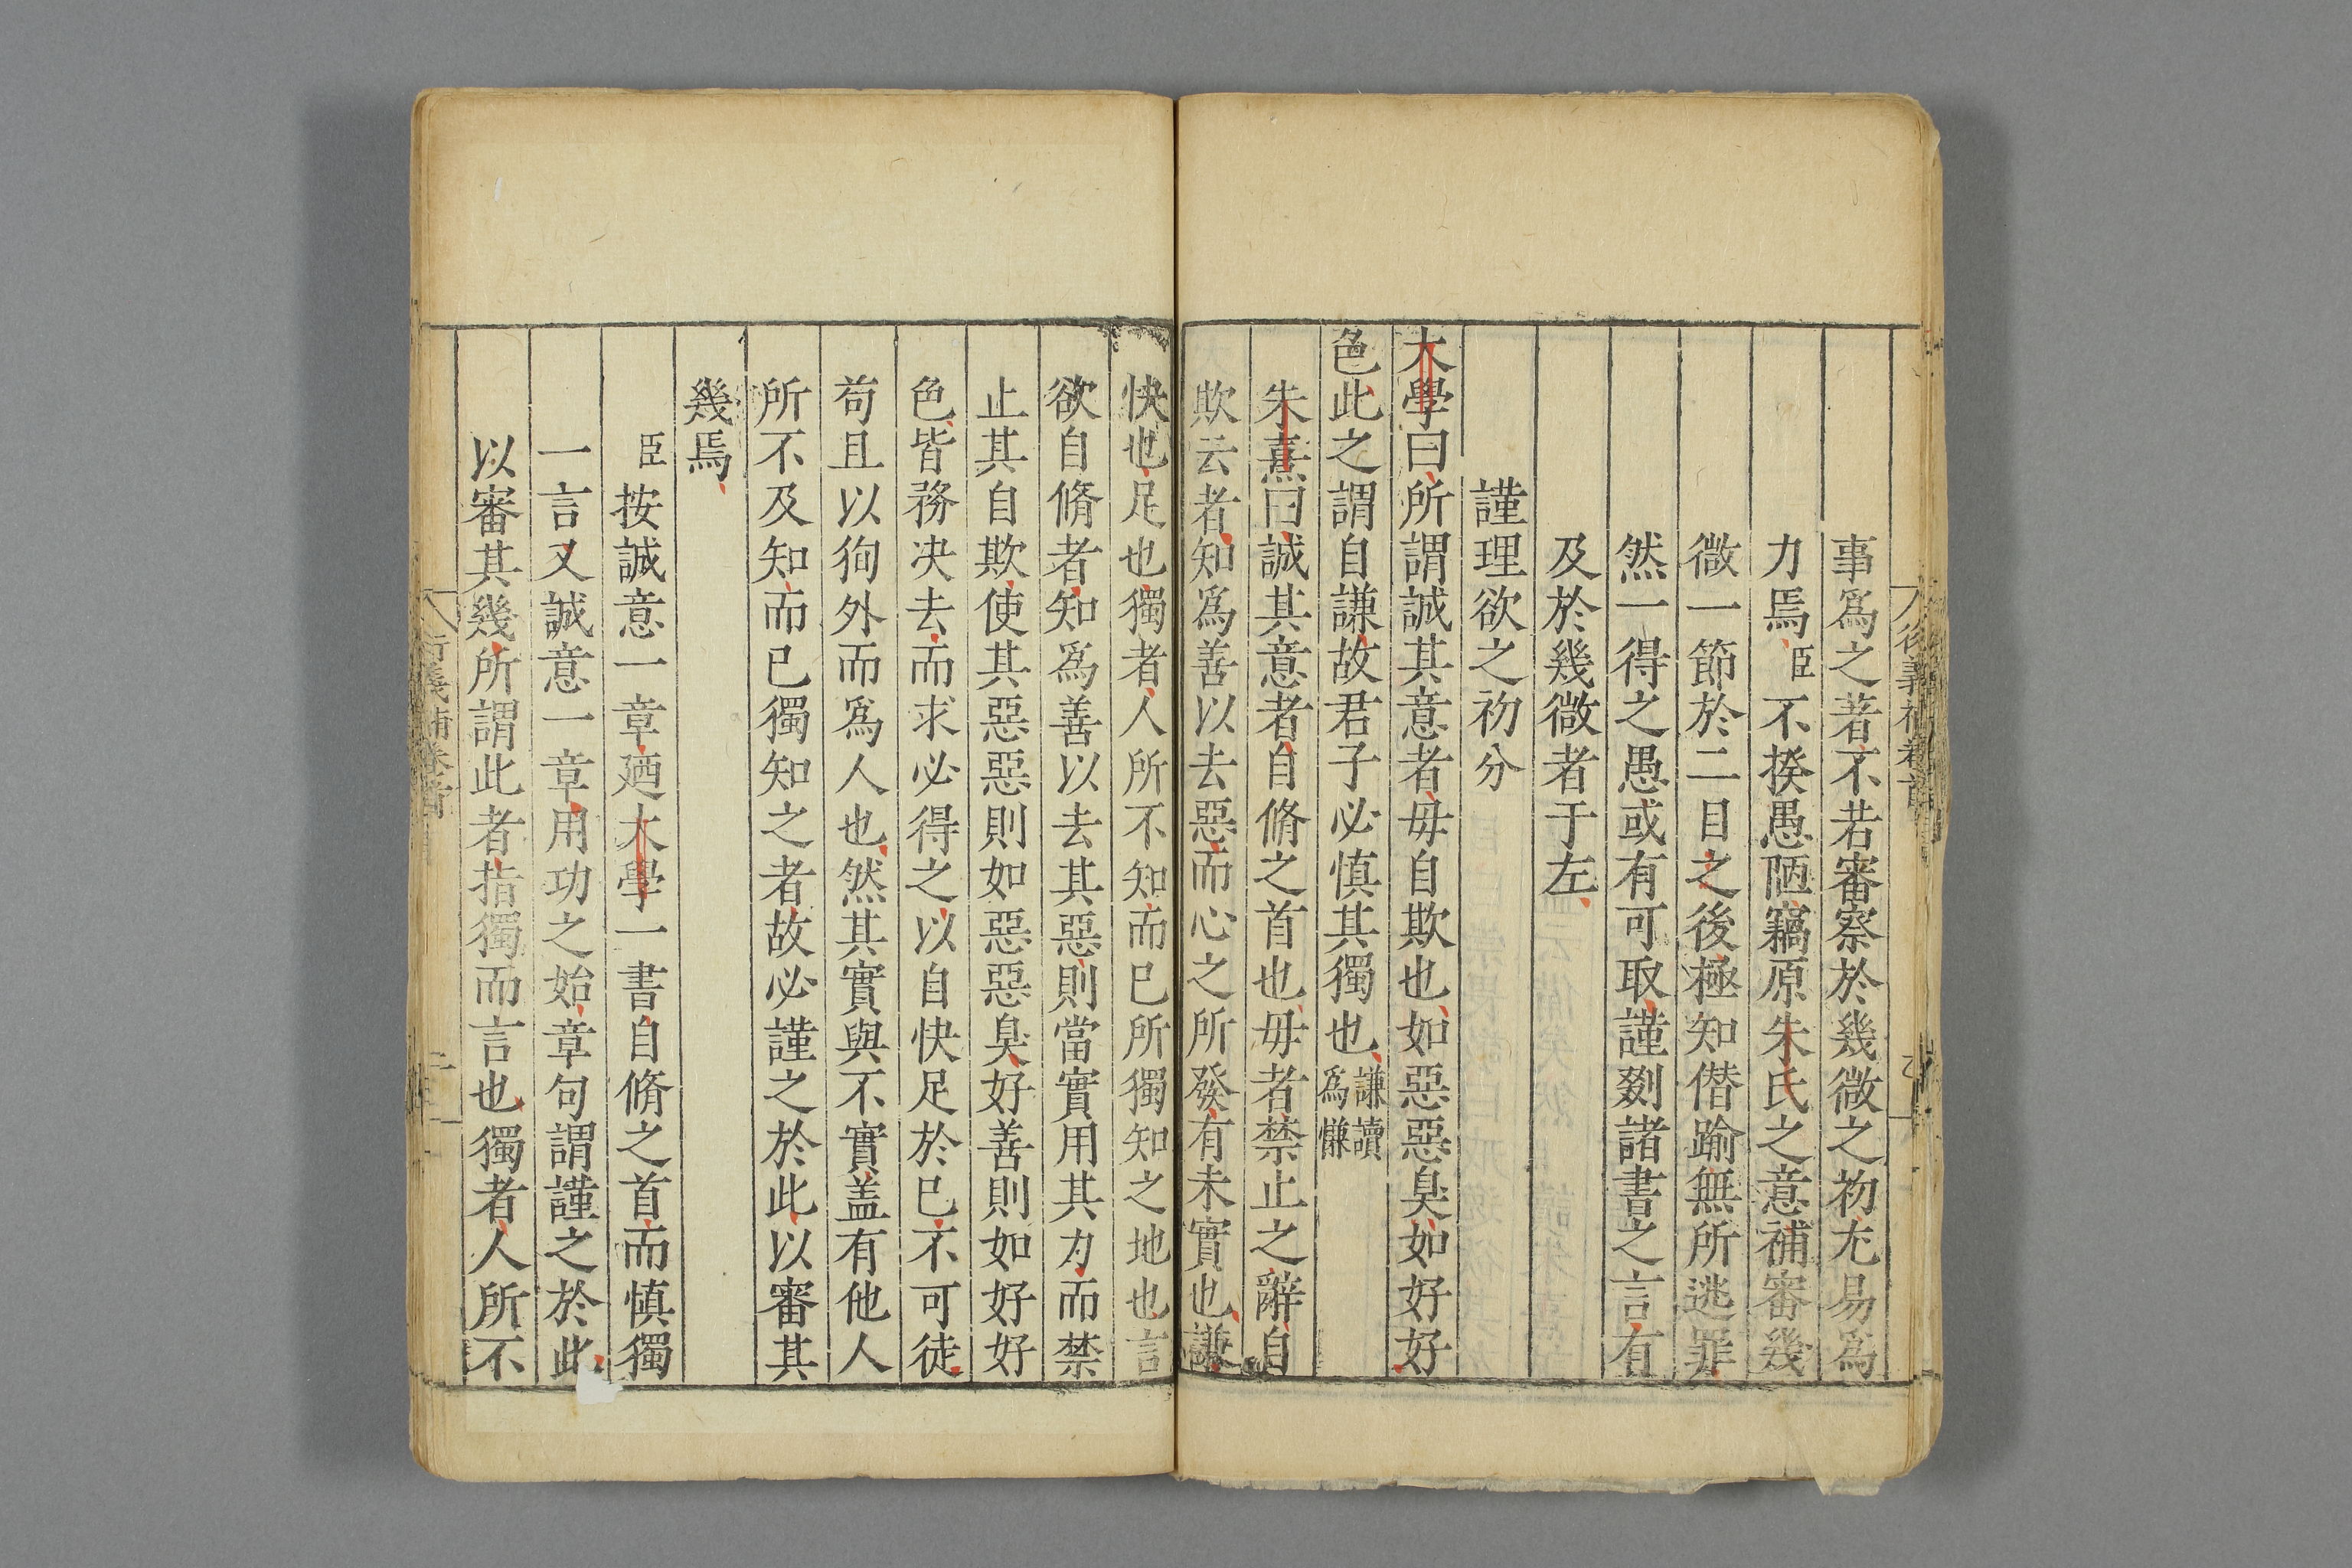 事爲之著不若審察於幾微之初尤易爲
力焉臣不揆愚陋竊原朱氏之意補審幾
微一節於二目之後極知僭踰無所逃罪
然一得之愚或有可取謹剟諸書之言有
及於幾微者于左
謹理欲之初分
大學曰所謂誠其意者毋自欺也如惡惡臭如好好
色此之謂自謙故君子必慎其獨也謙讀爲慊
朱熹曰誠其意者自脩之首也毋者禁止之辭自
欺云者知爲善以去惡而心之所發有未實也謙
快也足也獨者人所不知而已所獨知之地也言
欲自脩者知爲善以去其惡則當實用其力而禁
止其自欺使其惡惡則如惡惡臭好善則如好好
色皆務决去而求必得之以自快足於已不可徒
苟且以徇外而爲人也然其實與不實盖有他人
所不及知而已獨知之者故必謹之於此以審其
幾焉
臣按誠意一章廼大學一書自脩之首而慎獨
一言又誠意一章用功之始章句謂謹之於此
以審其幾所謂此者指獨而言也獨者人所不